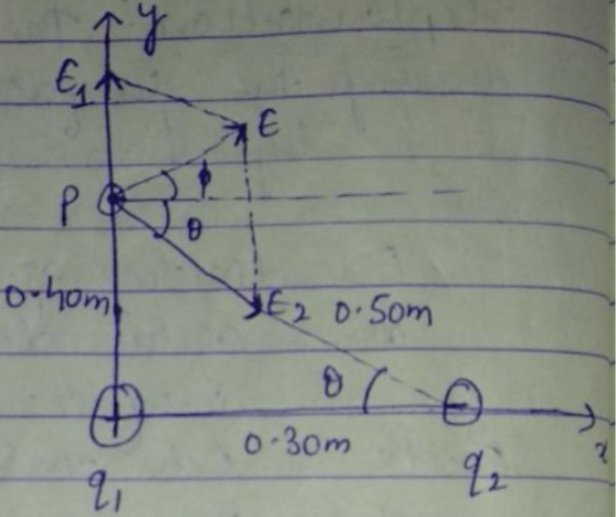 y
E₁
E
P
ϕ
θ
0.40m
E₂ 0.50m
θ
+
−
0.30m
x
q₁
q₂